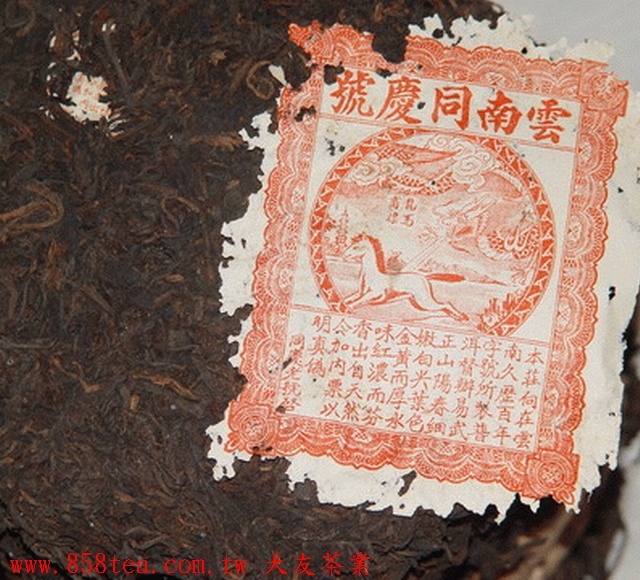 雲南同慶號
龍馬
商標
本莊向在雲
南久歷百年
字號所製普
洱督辦易武
正山陽春細
嫩白尖葉色
金黃而厚水
味紅濃而芬
香出自天然
今加內票以
明真偽
www.858tea.com.tw 大友茶業